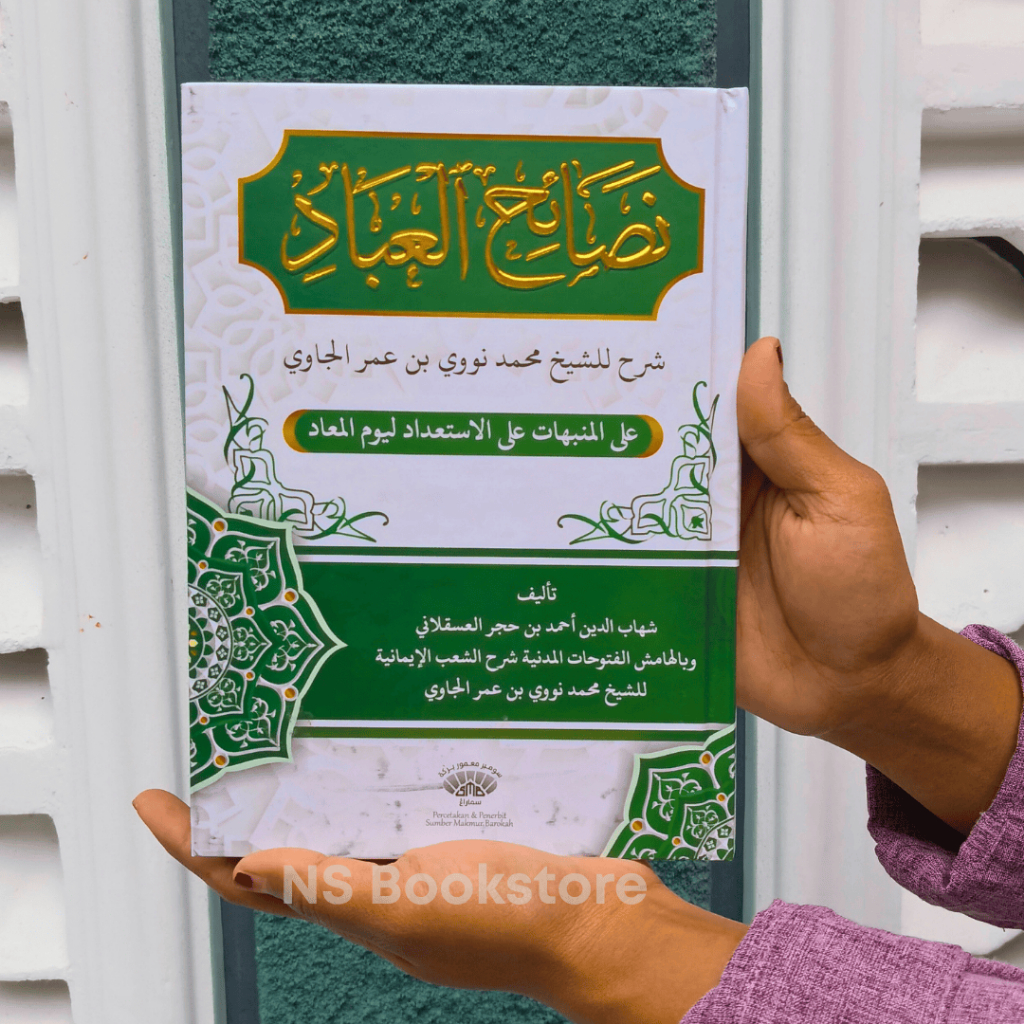 نَصَائِحُ الْعِبَادِ
شرح للشيخ محمد نووي بن عمر الجاوي
على المنبهات على الاستعداد ليوم المعاد
تأليف
شهاب الدين أحمد بن حجر العسقلاني
وبالهامش الفتوحات المدنية شرح الشعب الإيمانية
للشيخ محمد نووي بن عمر الجاوي
سومبر معمور بركة
SMB
سماراغ
Percetakan & Penerbit
Sumber Makmur Barokah
NS Bookstore